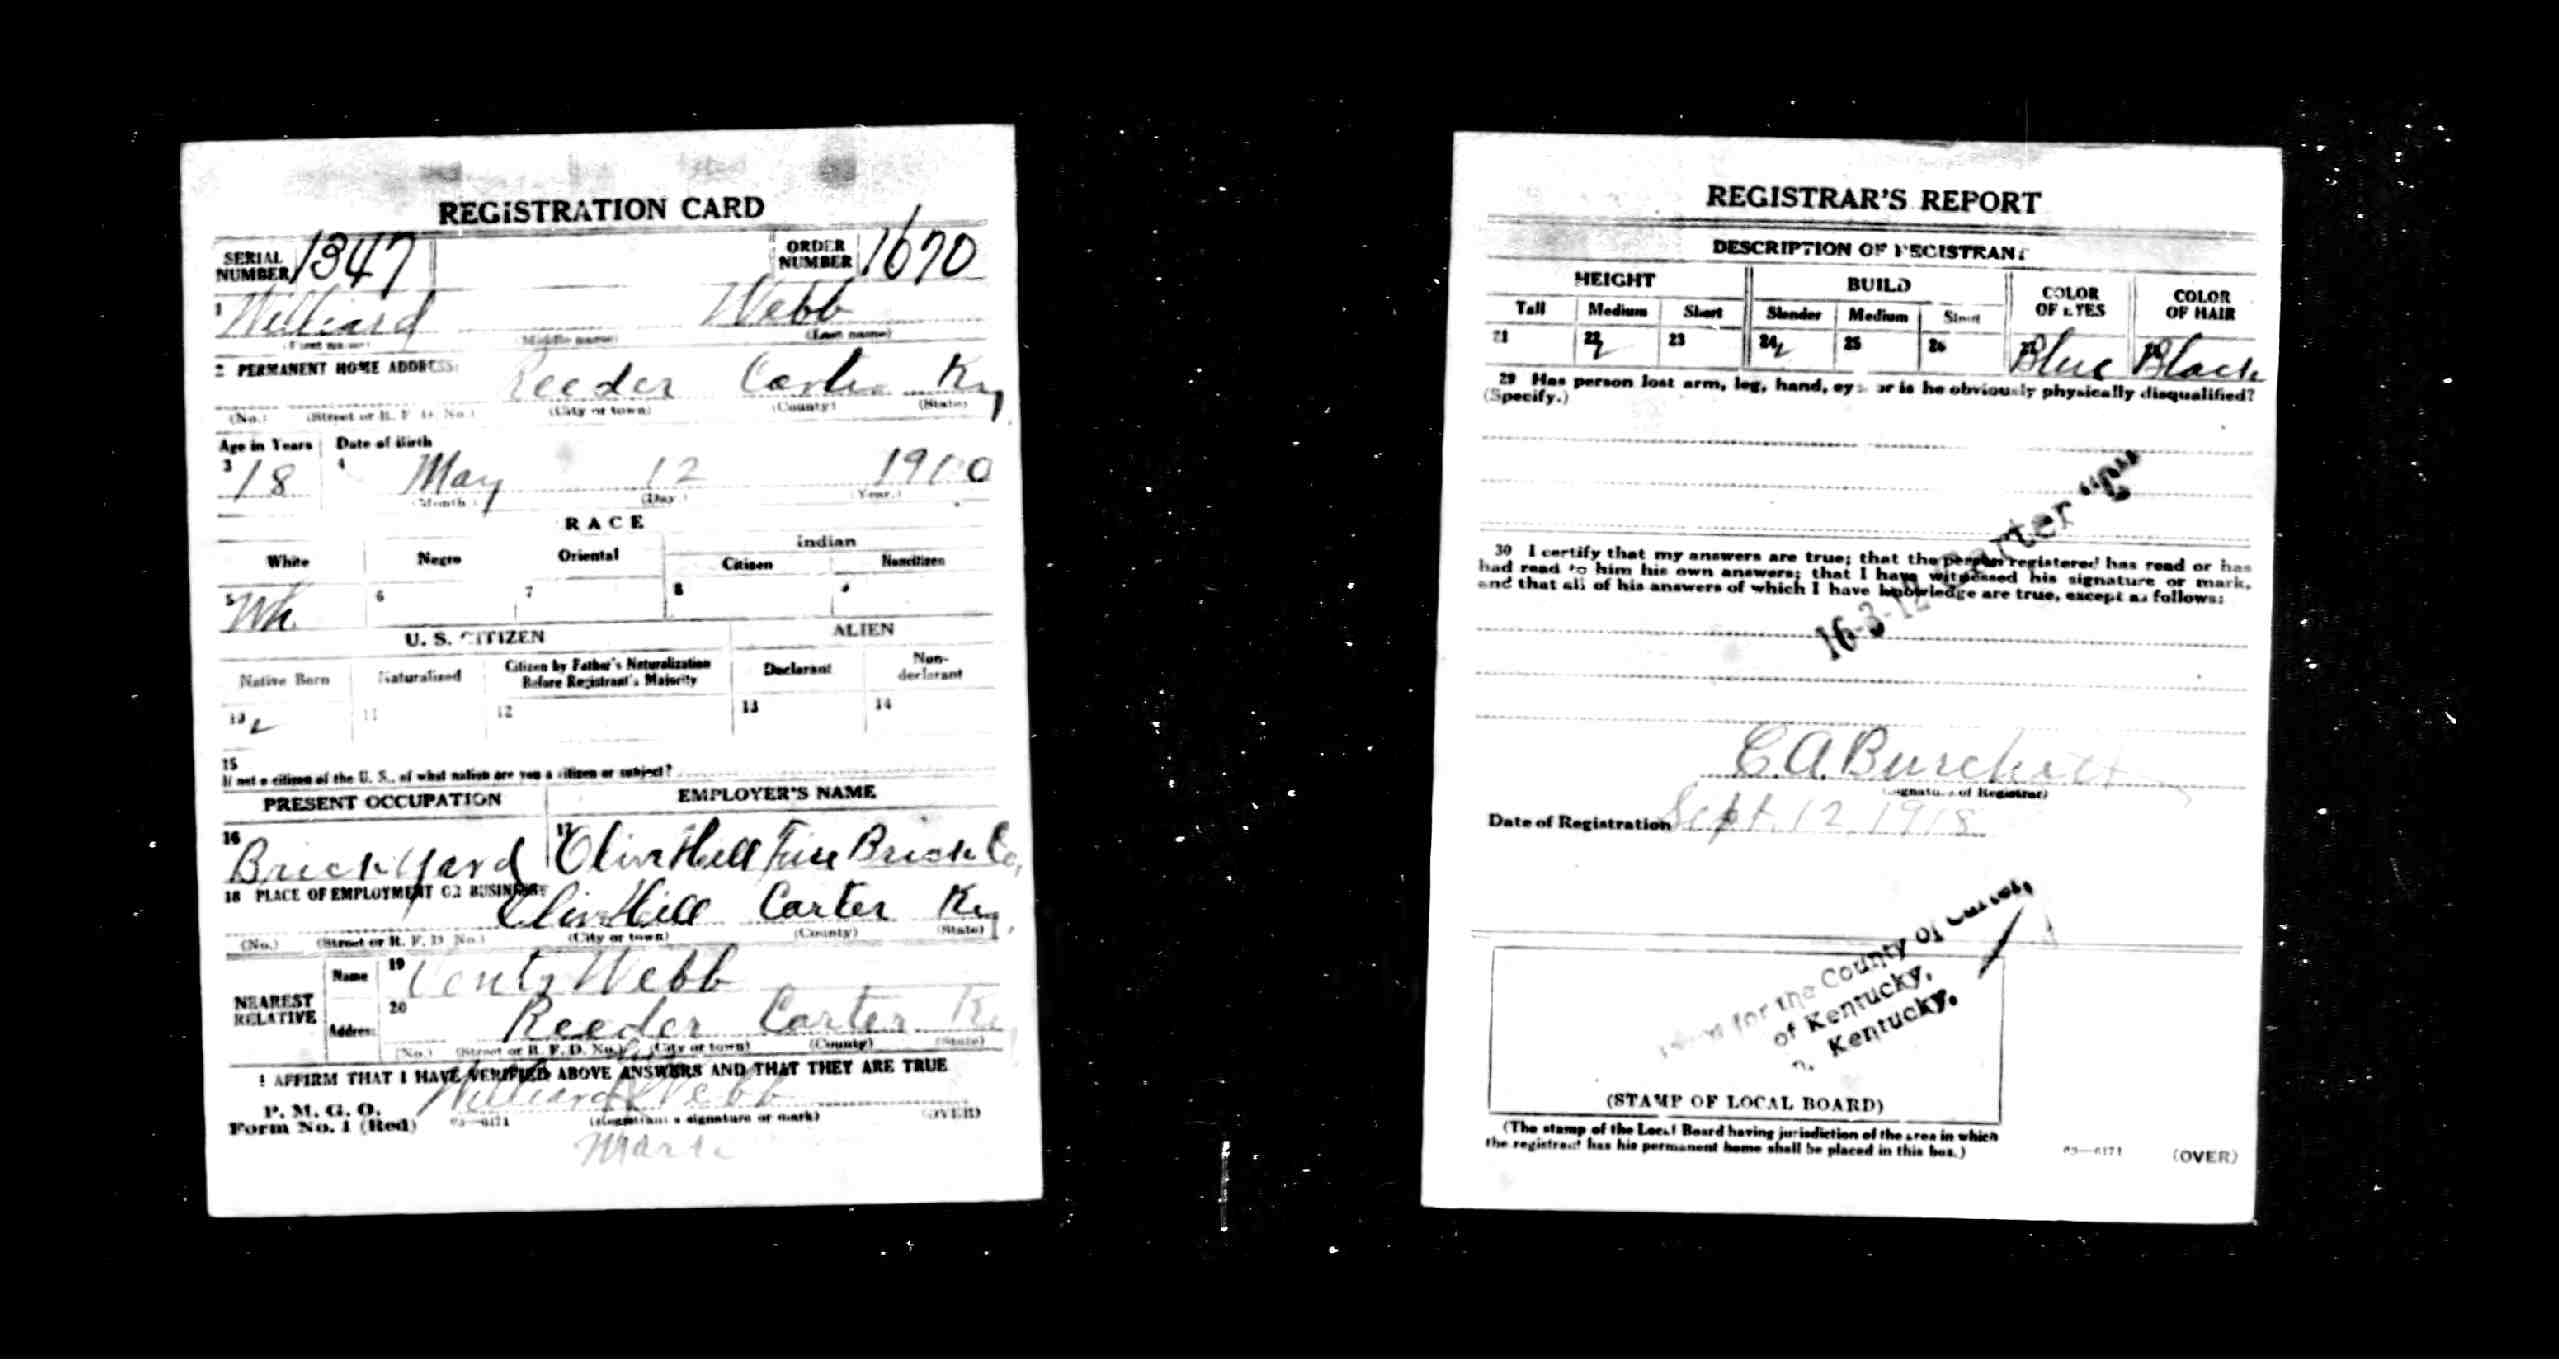 REGISTRATION CARD
SERIAL NUMBER 1347 ORDER NUMBER 1670
1 Williard Webb
(First name) (Middle name) (Last name)
2 PERMANENT HOME ADDRESS:
Reeder Carter Ky
(No.) (Street or R. F. D. No.) (City or town) (County) (State)
Age in Years Date of Birth
3 18 4 May 12 1900
(Month.) (Day.) (Year.)
RACE
White Negro Oriental Indian
Citizen Noncitizen
5 Wh. 6 7 8 9
U. S. CITIZEN ALIEN
Native Born Naturalized Citizen by Father's Naturalization Before Registrant's Majority Declarant Non-declarant
10 11 12 13 14
15
If not a citizen of the U. S., of what nation are you a citizen or subject?
PRESENT OCCUPATION EMPLOYER'S NAME
16 Brick Yard 17 Olive Hill Fire Brick Co,
18 PLACE OF EMPLOYMENT OR BUSINESS:
Olive Hill Carter Ky
(No.) (Street or R. F. D. No.) (City or town) (County) (State)
NEAREST RELATIVE
Name 19 Webb
Address 20 Reeder Carter Ky
(No.) (Street or R. F. D. No.) (City or town) (County) (State)
I AFFIRM THAT I HAVE VERIFIED ABOVE ANSWERS AND THAT THEY ARE TRUE
P. M. G. O.
Form No. 1 (Red) 03—6171 Williard X Webb
(Registrant's signature or mark) (OVER)
Mark
REGISTRAR'S REPORT
DESCRIPTION OF REGISTRANT
HEIGHT BUILD COLOR OF EYES COLOR OF HAIR
Tall Medium Short Slender Medium Stout
21 22 23 24 25 26 27 Blue 28 Black
29 Has person lost arm, leg, hand, eye, or is he obviously physically disqualified?
(Specify.)
16-3-12 Carter "C"
30 I certify that my answers are true; that the person registered has read or has
had read to him his own answers; that I have witnessed his signature or mark,
and that all of his answers of which I have knowledge are true, except as follows:
C. A. Burchett
(Signature of Registrar)
Date of Registration Sept. 12 1918
for the County of Carter,
of Kentucky,
Kentucky.
(STAMP OF LOCAL BOARD)
(The stamp of the Local Board having jurisdiction of the area in which
the registrant has his permanent home shall be placed in this box.)
03—6171 (OVER)